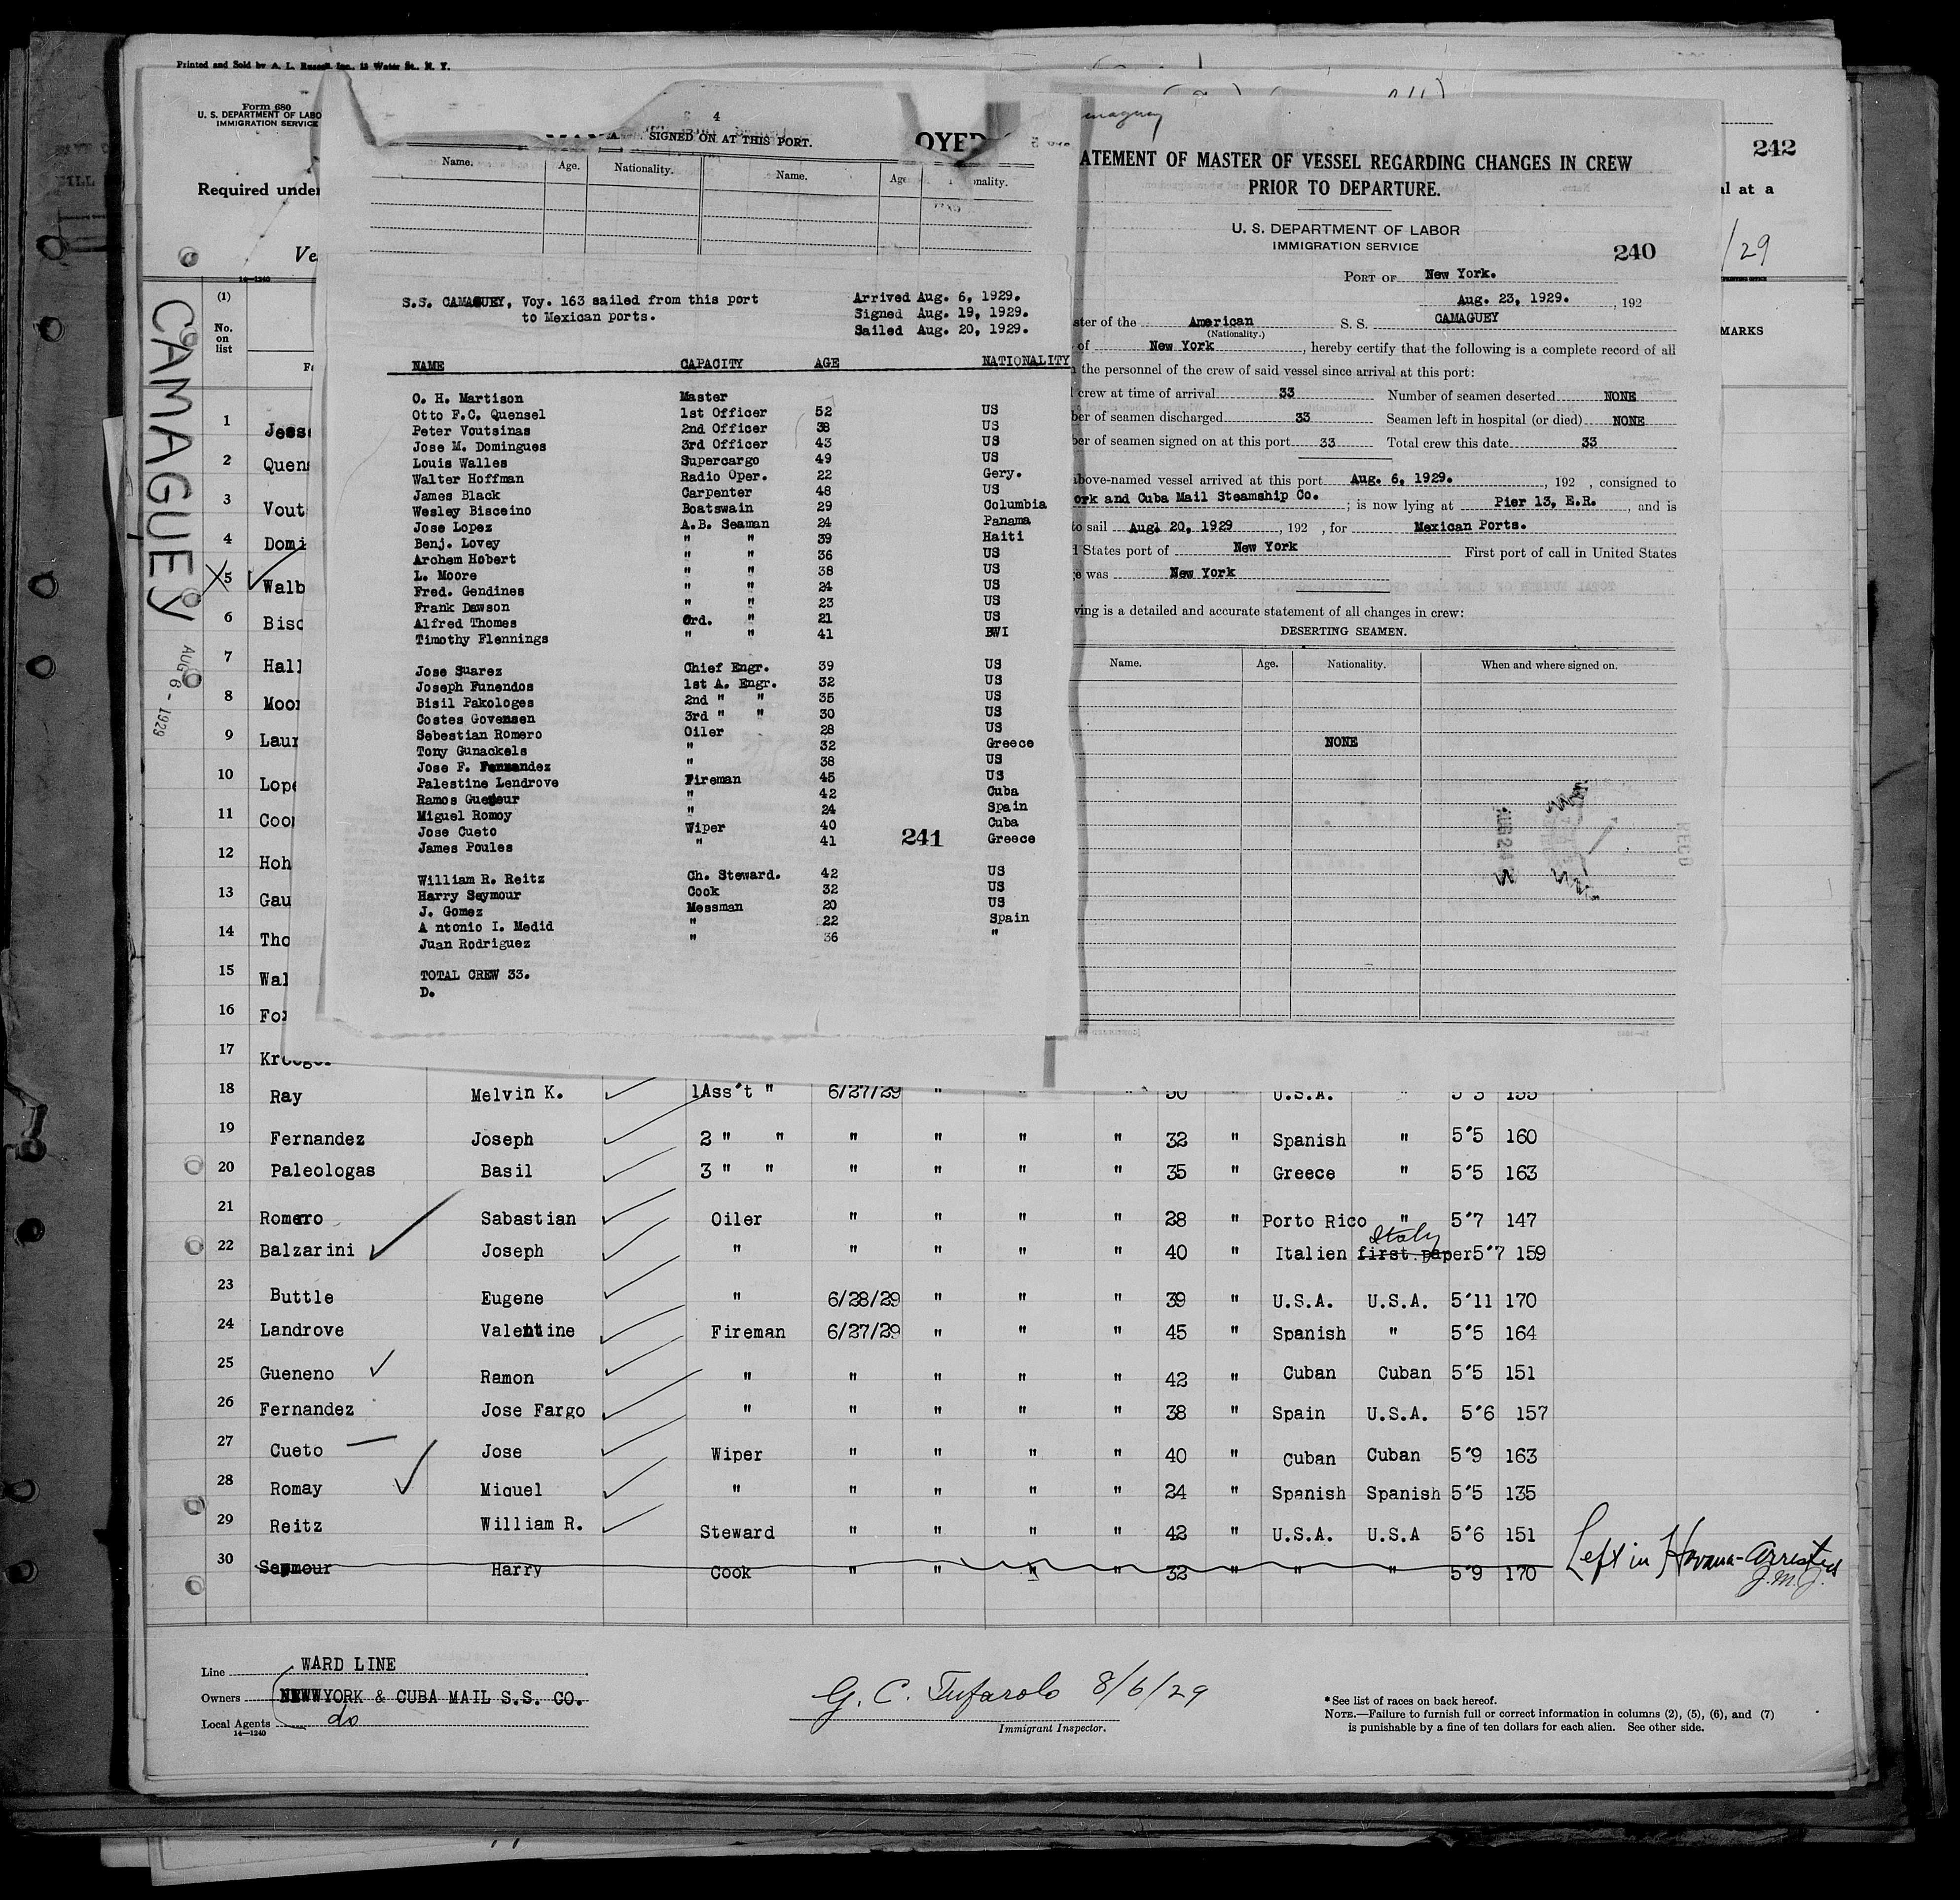 Printed and Sold by A. L. Russell Inc., 13 Water St., N. Y.
Form 680
U. S. DEPARTMENT OF LABO
IMMIGRATION SERVICE
Required under
Ve
14-1240
(1)
No.
on
list
CAMAGUEY
AUG 6 - 1929
4
SIGNED ON AT THIS PORT.
OYED
Name. Age. Nationality. Name. Age onality.
S.S. CAMAGUEY, Voy. 163 sailed from this port
to Mexican ports.
Arrived Aug. 6, 1929.
Signed Aug. 19, 1929.
Sailed Aug. 20, 1929.
NAME CAPACITY AGE NATIONALITY
O. H. Martison Master
Otto F.C. Quensel 1st Officer 52 US
Peter Voutsinas 2nd Officer 38 US
Jose M. Domingues 3rd Officer 43 US
Louis Walles Supercargo 49 US
Walter Hoffman Radio Oper. 22 Gery.
James Black Carpenter 48 US
Wesley Bisceino Boatswain 29 Columbia
Jose Lopez A.B. Seaman 24 Panama
Benj. Lovey " " 39 Haiti
Archem Hobert " " 36 US
L. Moore " " 38 US
Fred. Gendines " " 24 US
Frank Dawson " " 23 US
Alfred Thomes Ord. " 21 US
Timothy Flennings " " 41 BWI
Jose Suarez Chief Engr. 39 US
Joseph Funendos 1st A. Engr. 32 US
Bisil Pakologes 2nd " " 35 US
Costes Govensen 3rd " " 30 US
Sebestian Romero Oiler 28 US
Tony Gunackels " 32 Greece
Jose F. Fernandez " 38 US
Palestine Lendrove Fireman 45 US
Ramos Gueneur " 42 Cuba
Miguel Romoy " 24 Spain
Jose Cueto Wiper 40 Cuba
James Poules " 41 Greece
241
William R. Reitz Ch. Steward. 42 US
Harry Seymour Cook 32 US
J. Gomez Messman 20 US
A ntonio I. Medid " 22 Spain
Juan Rodriguez " 36 "
TOTAL CREW 33.
D.
maguey
ATEMENT OF MASTER OF VESSEL REGARDING CHANGES IN CREW
PRIOR TO DEPARTURE.
U. S. DEPARTMENT OF LABOR
IMMIGRATION SERVICE
240
PORT OF New York.
Aug. 23, 1929. , 192
ster of the American S. S. CAMAGUEY
(Nationality.)
of New York , hereby certify that the following is a complete record of all
the personnel of the crew of said vessel since arrival at this port:
crew at time of arrival 33 Number of seamen deserted NONE
ber of seamen discharged 33 Seamen left in hospital (or died) NONE
ber of seamen signed on at this port 33 Total crew this date 33
bove-named vessel arrived at this port Aug. 6, 1929. , 192 , consigned to
ork and Cuba Mail Steamship Co. ; is now lying at Pier 13, E.R. , and is
to sail Augl 20, 1929 , 192 , for Mexican Ports.
d States port of New York First port of call in United States
e was New York
ving is a detailed and accurate statement of all changes in crew:
DESERTING SEAMEN.
Name. Age. Nationality. When and where signed on.
NONE
RECD
242
l at a
/29
MARKS
1 Jess
2 Quen
3 Vout
4 Domi
5 Walb
6 Bisc
7 Hall
8 Moor
9 Laur
10 Lope
11 Coo
12 Hoh
13 Gau
14 Tho
15 Wal
16 Fo
17 Kroeger
18 Ray Melvin K. 1Ass't " 6/27/29 " " " 30 " U.S.A. " 5'5 155
19 Fernandez Joseph 2 " " " " " " 32 " Spanish " 5'5 160
20 Paleologas Basil 3 " " " " " " 35 " Greece " 5'5 163
21 Romero Sabastian Oiler " " " " 28 " Porto Rico " 5'7 147
22 Balzarini Joseph " " " " " 40 " Italien first paper Italy 5'7 159
23 Buttle Eugene " 6/28/29 " " " 39 " U.S.A. U.S.A. 5'11 170
24 Landrove Valentine Fireman 6/27/29 " " " 45 " Spanish " 5'5 164
25 Gueneno Ramon " " " " " 42 " Cuban Cuban 5'5 151
26 Fernandez Jose Fargo " " " " " 38 " Spain U.S.A. 5'6 157
27 Cueto Jose Wiper " " " " 40 " Cuban Cuban 5'9 163
28 Romay Miquel " " " " " 24 " Spanish Spanish 5'5 135
29 Reitz William R. Steward " " " " 42 " U.S.A. U.S.A 5'6 151
30 Seymour Harry Cook " " " " 32 " " " 5'9 170 Left in Havana - Arrested
J.M.J.
Line WARD LINE
Owners NEW YORK & CUBA MAIL S.S. CO.
Local Agents do
14-1240
G. C. Tufarolo 8/6/29
Immigrant Inspector.
* See list of races on back hereof.
NOTE.—Failure to furnish full or correct information in columns (2), (5), (6), and (7)
is punishable by a fine of ten dollars for each alien. See other side.